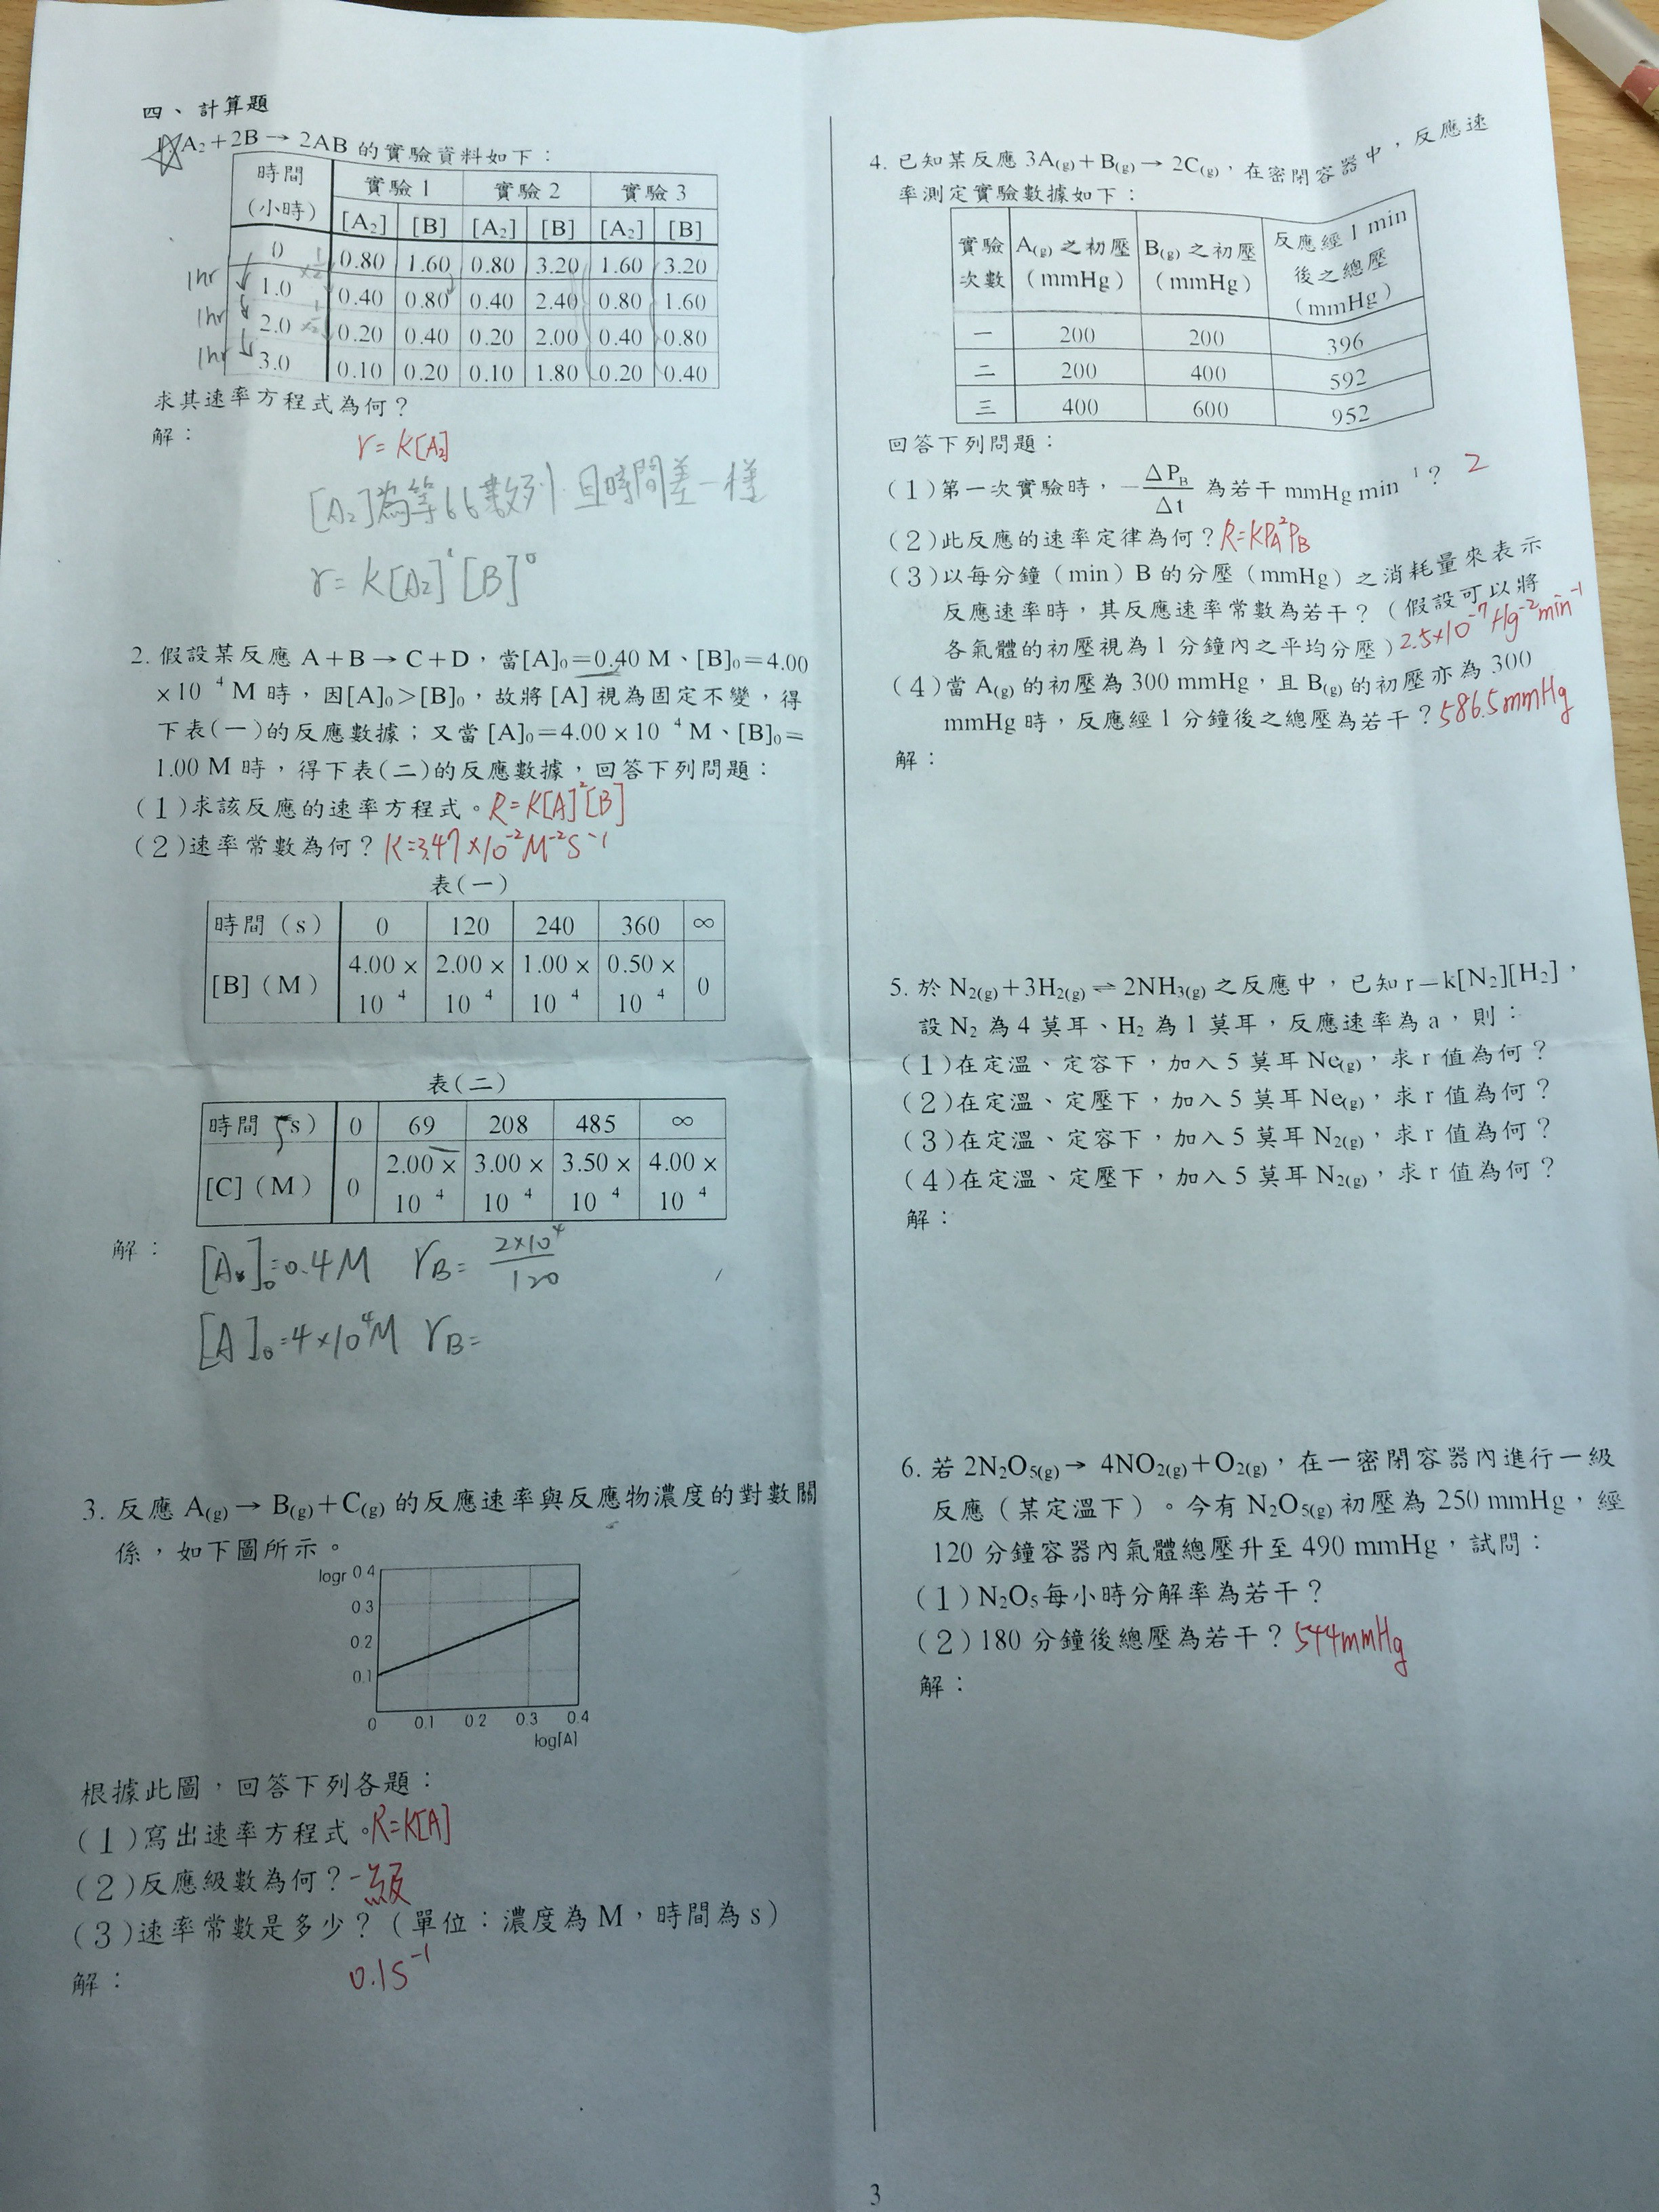 四、計算題
1. A₂+2B → 2AB 的實驗資料如下：
時間（小時） 實驗1 實驗2 實驗3
[A₂] [B] [A₂] [B] [A₂] [B]
0 0.80 1.60 0.80 3.20 1.60 3.20
1.0 0.40 0.80 0.40 2.40 0.80 1.60
2.0 0.20 0.40 0.20 2.00 0.40 0.80
3.0 0.10 0.20 0.10 1.80 0.20 0.40
1hr
×1/2
1hr
×1/2
1hr
求其速率方程式為何？
解：
r=K[A₂]
[A₂]為等比數列 且時間差一樣
r=K[A₂]¹[B]⁰
2. 假設某反應 A+B → C+D，當[A]₀=0.40 M、[B]₀=4.00
×10 ⁴ M 時，因[A]₀>[B]₀，故將 [A] 視為固定不變，得
下表(一)的反應數據；又當 [A]₀=4.00×10 ⁴ M、[B]₀=
1.00 M 時，得下表(二)的反應數據，回答下列問題：
(1)求該反應的速率方程式。R=K[A]²[B]
(2)速率常數為何？K=3.47×10⁻²M⁻²S⁻¹
表(一)
時間（s） 0 120 240 360 ∞
[B]（M） 4.00×10 ⁴ 2.00×10 ⁴ 1.00×10 ⁴ 0.50×10 ⁴ 0
表(二)
時間（s） 0 69 208 485 ∞
[C]（M） 0 2.00×10 ⁴ 3.00×10 ⁴ 3.50×10 ⁴ 4.00×10 ⁴
解：
[A]₀=0.4M rB= 2×10⁴/120
[A]₀=4×10⁴M rB=
3. 反應 A(g) → B(g)+C(g) 的反應速率與反應物濃度的對數關
係，如下圖所示。
logr 0.4
0.3
0.2
0.1
0 0.1 0.2 0.3 0.4
log[A]
根據此圖，回答下列各題：
(1)寫出速率方程式。R=K[A]
(2)反應級數為何？一級
(3)速率常數是多少？（單位：濃度為 M，時間為 s）
解：
0.1S⁻¹
4. 已知某反應 3A(g)+B(g) → 2C(g)，在密閉容器中，反應速
率測定實驗數據如下：
實驗次數 A(g) 之初壓（mmHg） B(g) 之初壓（mmHg） 反應經 1 min 後之總壓（mmHg）
一 200 200 396
二 200 400 592
三 400 600 952
回答下列問題：
(1)第一次實驗時，－ΔPB/Δt 為若干 mmHg min ¹？ 2
(2)此反應的速率定律為何？R=KPA²PB
(3)以每分鐘（min）B 的分壓（mmHg）之消耗量來表示
反應速率時，其反應速率常數為若干？（假設可以將
各氣體的初壓視為 1 分鐘內之平均分壓）2.5×10⁻⁷Hg⁻²min⁻¹
(4)當 A(g) 的初壓為 300 mmHg，且 B(g) 的初壓亦為 300
mmHg 時，反應經 1 分鐘後之總壓為若干？586.5mmHg
解：
5. 於 N₂(g)+3H₂(g) ⇌ 2NH₃(g) 之反應中，已知 r=k[N₂][H₂]，
設 N₂ 為 4 莫耳、H₂ 為 1 莫耳，反應速率為 a，則：
(1)在定溫、定容下，加入 5 莫耳 Ne(g)，求 r 值為何？
(2)在定溫、定壓下，加入 5 莫耳 Ne(g)，求 r 值為何？
(3)在定溫、定容下，加入 5 莫耳 N₂(g)，求 r 值為何？
(4)在定溫、定壓下，加入 5 莫耳 N₂(g)，求 r 值為何？
解：
6. 若 2N₂O₅(g) → 4NO₂(g)+O₂(g)，在一密閉容器內進行一級
反應（某定溫下）。今有 N₂O₅(g) 初壓為 250 mmHg，經
120 分鐘容器內氣體總壓升至 490 mmHg，試問：
(1)N₂O₅ 每小時分解率為若干？
(2)180 分鐘後總壓為若干？544mmHg
解：
3